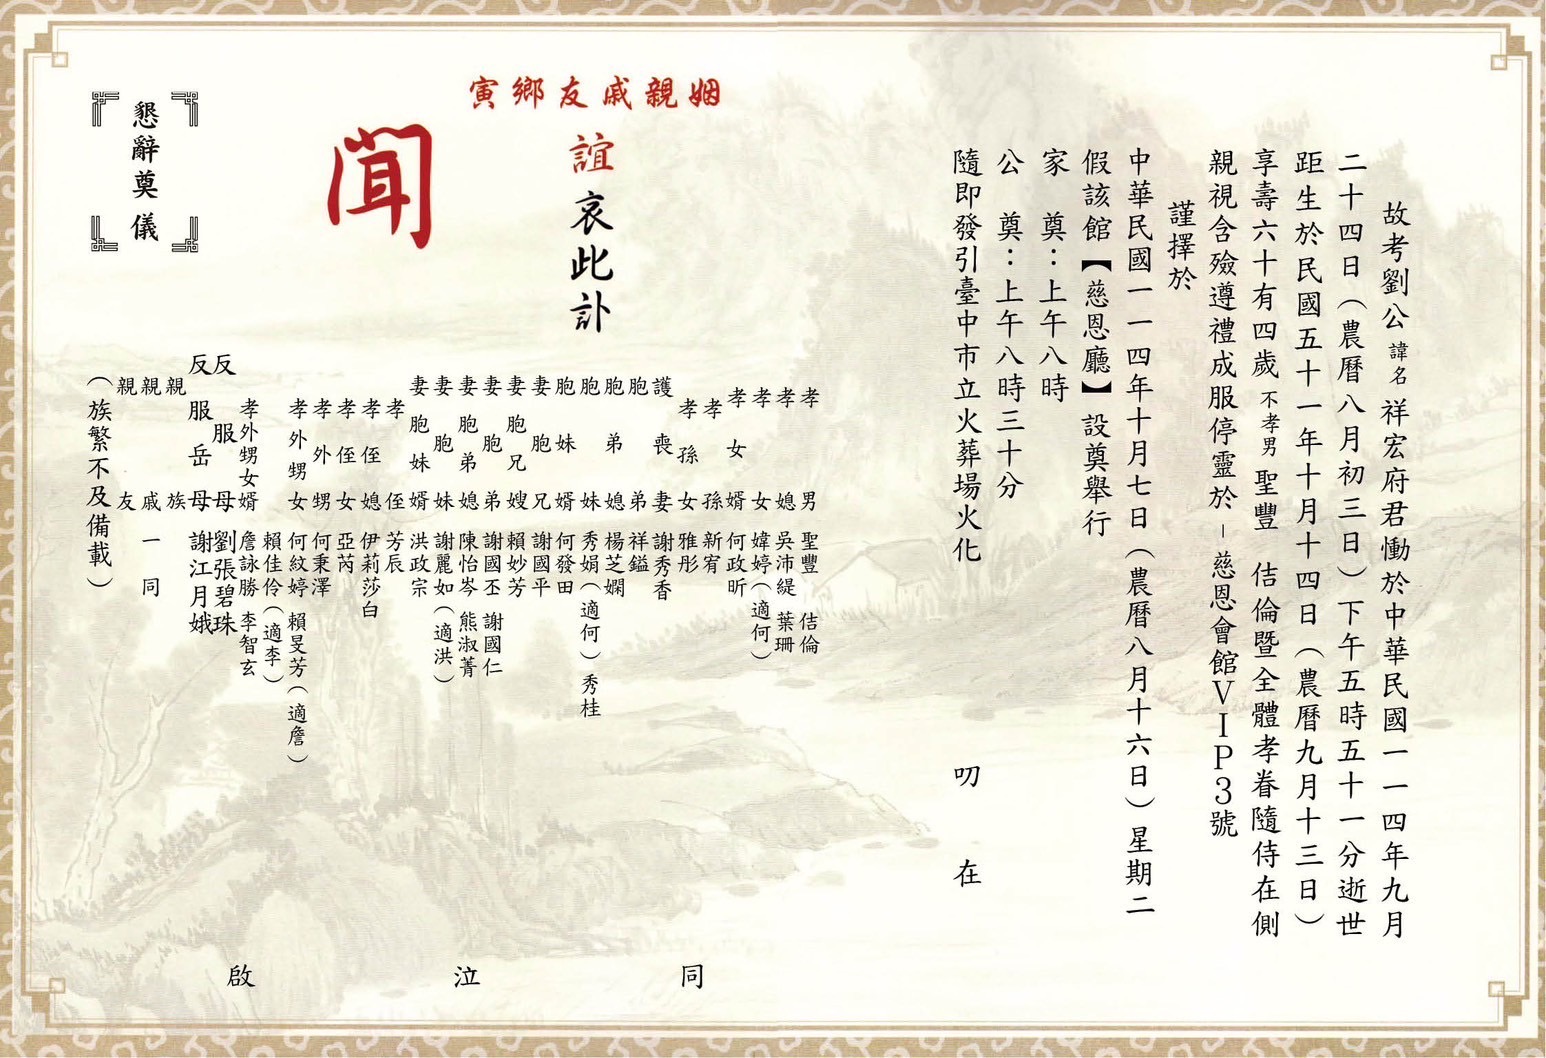 故考劉公諱名祥宏府君慟於中華民國一一四年九月
二十四日（農曆八月初三日）下午五時五十一分逝世
距生於民國五十一年十月十四日（農曆九月十三日）
享壽六十有四歲不孝男聖豐　佶倫暨全體孝眷隨侍在側
親視含殮遵禮成服停靈於－慈恩會館ＶＩＰ３號
謹擇於
中華民國一一四年十月七日（農曆八月十六日）星期二
假該館【慈恩廳】設奠舉行
家　奠：上午八時
公　奠：上午八時三十分
隨即發引臺中市立火葬場火化
叨　在
姻親戚友鄉寅
誼哀此訃
聞
孝男　聖豐　佶倫
孝媳　吳沛緹　葉珊
孝女　媁婷（適何）
孝女婿　何政昕
孝孫　新宥
孝孫女　雅彤
護喪妻　謝秀香
胞弟　祥鎰
胞弟媳　楊芝嫻
胞妹　秀娟（適何）　秀桂
胞妹婿　何發田
妻胞兄　謝國平
妻胞兄嫂　賴妙芳
妻胞弟　謝國丕　謝國仁
妻胞弟媳　陳怡岑　熊淑菁
妻胞妹　謝麗如（適洪）
妻胞妹婿　洪政宗
孝侄　芳辰
孝侄媳　伊莉莎白
孝侄女　亞芮
孝外甥　何秉澤
孝外甥女　何紋婷　賴旻芳（適詹）
賴佳伶（適李）
孝外甥女婿　詹詠勝　李智玄
反服母　劉張碧珠
反服岳母　謝江月娥
親族
親戚一同
親友
（族繁不及備載）
同　泣　啟
懇辭奠儀